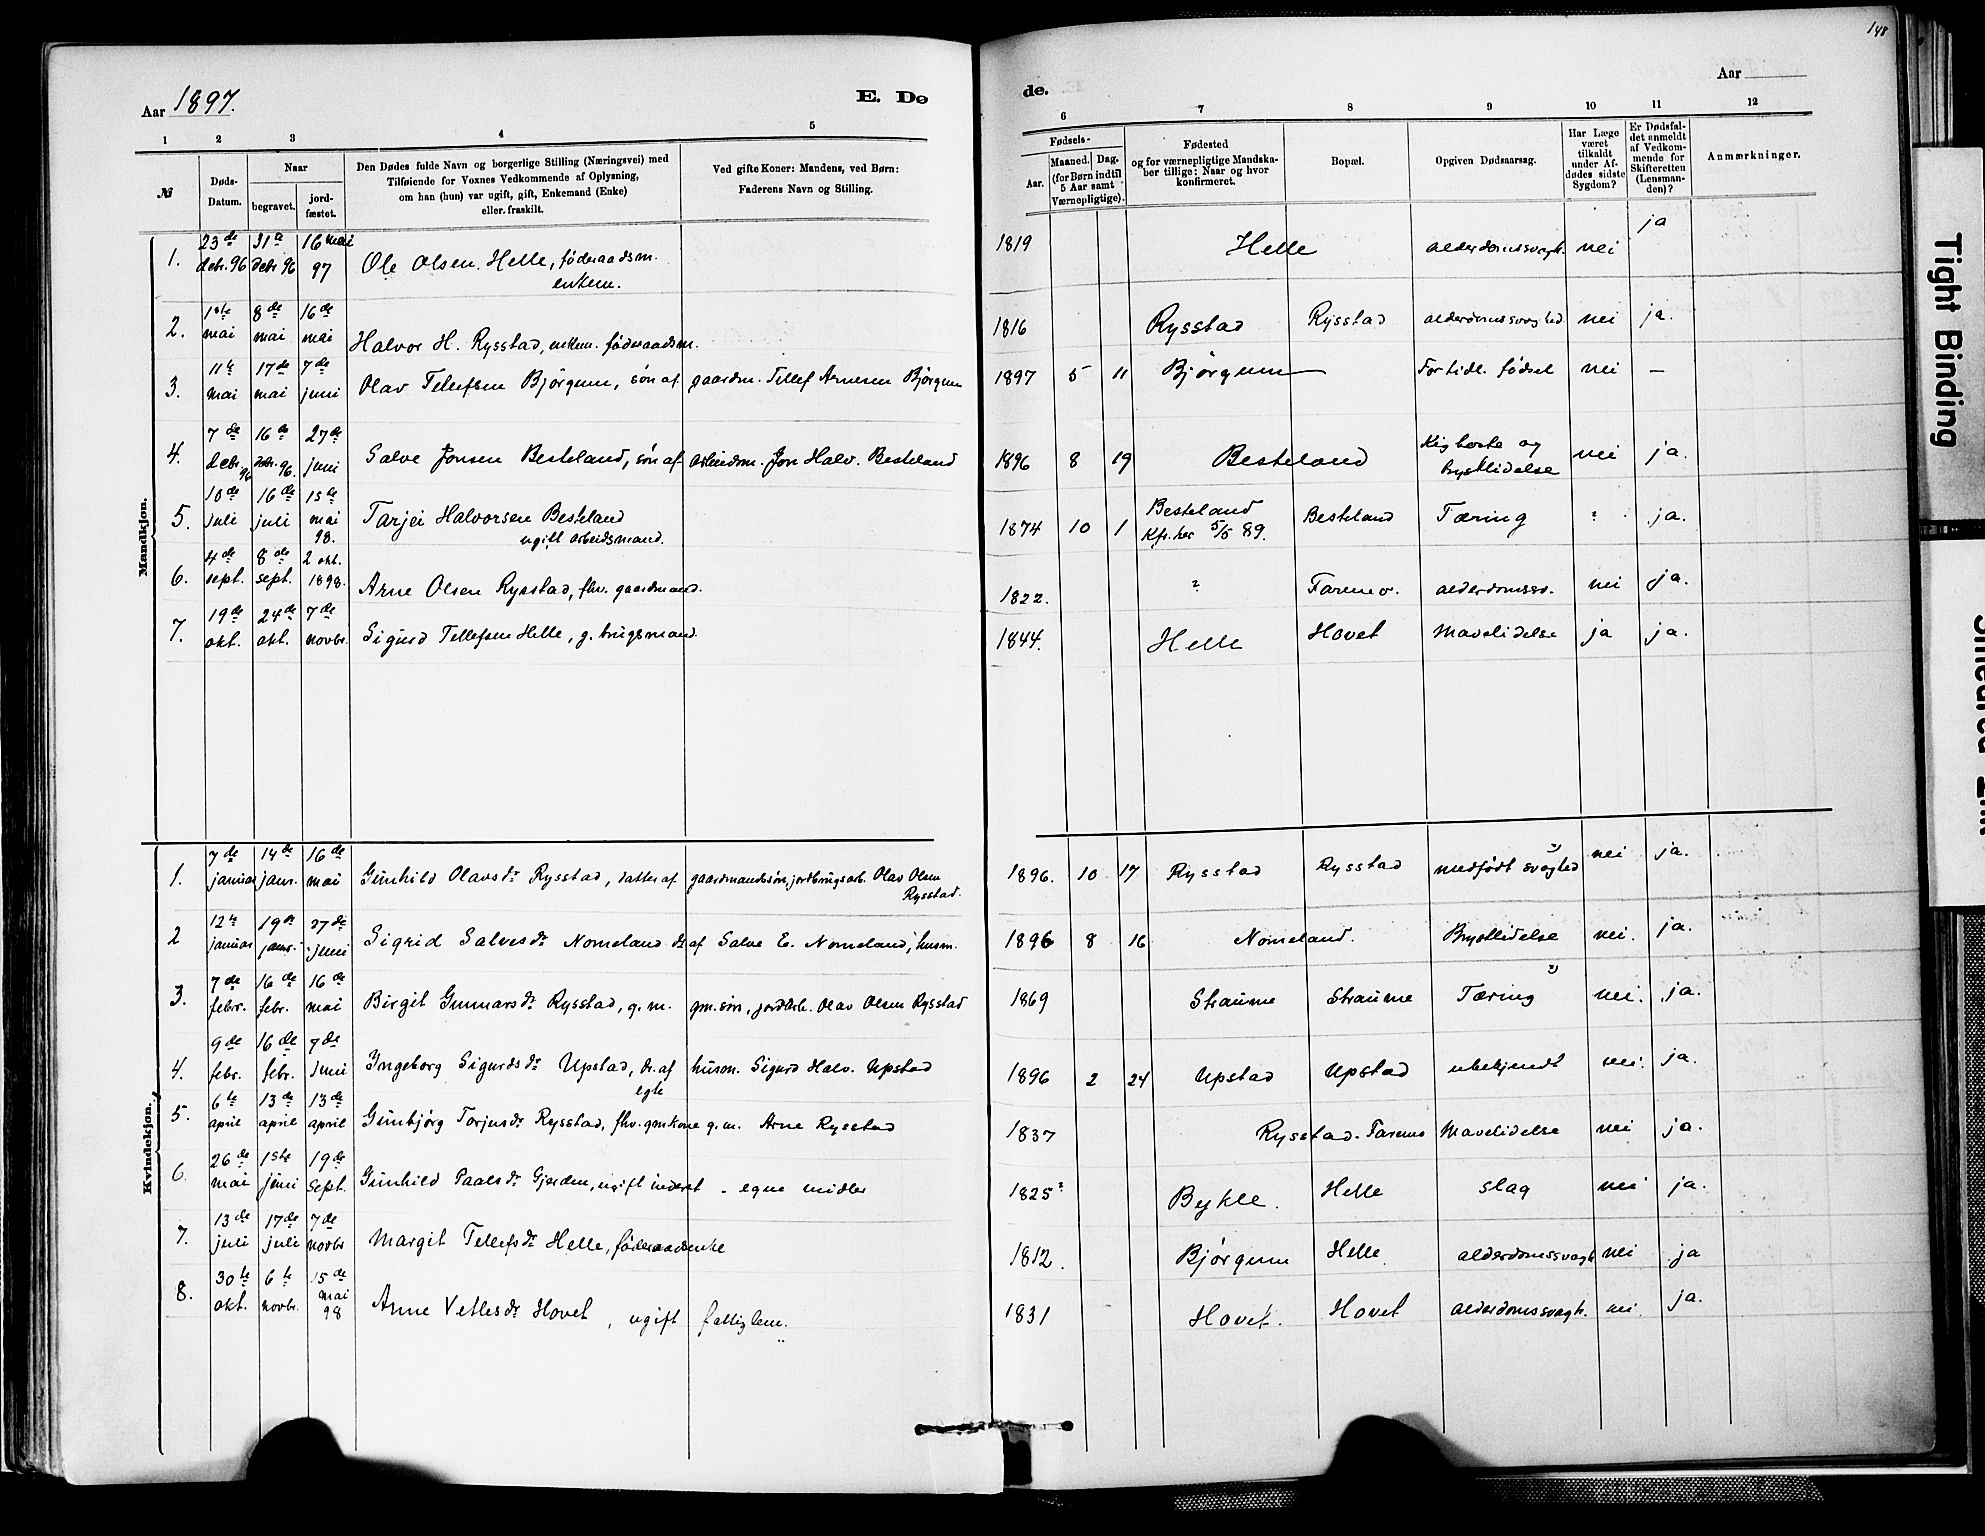 148
Aar 1897.
E. Dø
de.
Aar
1 2 3 4 5
6 7 8 9 10 11 12
№
Døds-Datum.
Naar
begravet.
jord-fæstet.
Den Dødes fulde Navn og borgerlige Stilling (Næringsvei) med
Tilføiende for Voxnes Vedkommende af Oplysning,
om han (hun) var ugift, gift, Enkemand (Enke)
eller fraskilt.
Ved gifte Koner: Mandens, ved Børn:
Faderens Navn og Stilling.
Fødsels-
Aar.
Maaned. Dag.
(for Børn indtil
5 Aar samt
Værnepligtige).
Fødested
og for værnepligtige Mandska-
ber tillige: Naar og hvor
konfirmeret.
Bopæl.
Opgiven Dødsaarsag.
Har Læge
været
tilkaldt
under Af-
dødes sidste
Sygdom?
Er Dødsfal-
det anmeldt
af Vedkom-
mende for
Skifteretten
(Lensman-
den)?
Anmærkninger.
Mandkjøn.
1. 23de decbr. 96 31te decbr 96 16 mai 97 Ole Olsen Helle, føderaadsm. enkem. 1819 Helle alderdomssvagh. nei ja
2. 1ste mai 8de mai 16de mai Halvor H. Rysstad, enkem. føderaadsm. 1816 Rysstad Rysstad alderdomssvaghed nei ja.
3. 11te mai 17de mai 7de juni Olav Tellefsen Bjørgum, søn af gaardm. Tellef Arnesen Bjørgum 1897 5 11 Bjørgum — For tidl. fødsel nei —
4. 7de decbr. 96 16de decbr. 96 27de juni Salve Jonsen Besteland, søn af arbeidsm. Jon Halv. Besteland 1896 8 19 Besteland Kighoste og brystlidelse nei ja.
5. 10de juli 16de juli 15de mai 98. Tarjei Halvorsen Besteland ugift arbeidsmand. 1874 10 1 Besteland Kfr. her 5/5 89. Besteland Tæring ? ja.
6. 4de sept. 8de sept. 2 okt. 1898. Arne Olsen Rysstad, fhv. gaardmand. 1822. ? Faremo. alderdomssv. nei ja.
7. 19de okt. 24de okt. 7de novbr. Sigurd Tellefsen Helle, g. brugsmand. 1844. Helle Hovet Mavelidelse ja ja.
Kvindekjøn.
1. 7de januar 14de janr. 16de mai Gunhild Olavsdr Rysstad, datter af gaardmandssøn, jordbrugsarb. Olav Olsen Rysstad. 1896. 10 17 Rysstad Rysstad medfødt svaghed nei ja.
2 12te januar 19de janr. 27de juni Sigrid Salvesdr Nomeland dr af Salve E. Nomeland, husm. 1896 8 16 Nomeland. Brystlidelse nei. ja.
3. 7de febr. 16de febr. 16de mai Birgit Gunnarsdr Rysstad, g. m. gm. søn, jordarb. Olav Olsen Rysstad 1869 Straume Straume Tæring nei. ja.
4. 9de febr. 16de febr. 7de juni Ingeborg Sigurdsdr Upstad, dr. af egte husm. Sigurd Halv. Upstad 1896 2 24 Upstad Upstad ubekjendt nei. ja.
5. 6te april 13de april 13de april Gunbjørg Torjusdr Rysstad, fhv. gmkone g. m. Arne Rysstad 1837 Rysstad. Faremo Mavelidelse nei ja.
6. 26de mai 1ste juni 19de sept. Gunhild Paalsdr Gjerden, ugift inderst - egne midler 1825? Bykle. Helle slag nei ja.
7. 13de juli 17de juli 7de novbr Margit Tellefsdr Helle, føderaadsenke 1812. Bjørgum Helle alderdomssvagh nei ja
8. 30te okt. 6te novbr. 15de mai 98 Anne Vetlesdr Hovet, ugift fattiglem. 1831 Hovet. Hovet alderdomssvagh. nei ja.
Tight Binding